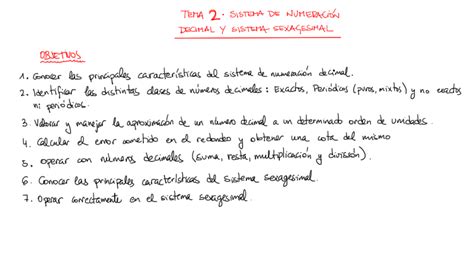 TEMA 2. SISTEMA DE NUMERACIÓN
DECIMAL Y SISTEMA SEXAGESIMAL
OBJETIVOS
1. Conocer las principales características del sistema de numeración decimal.
2. Identificar las distintas clases de números decimales: Exactos, Periódicos (puros, mixtos) y no exactos
ni periódicos.
3. Valorar y manejar la aproximación de un número decimal a un determinado orden de unidades.
4. Calcular el error cometido en el redondeo y obtener una cota del mismo
5. Operar con números decimales (suma, resta, multiplicación y división).
6. Conocer las principales características del sistema sexagesimal.
7. Operar correctamente en el sistema sexagesimal.